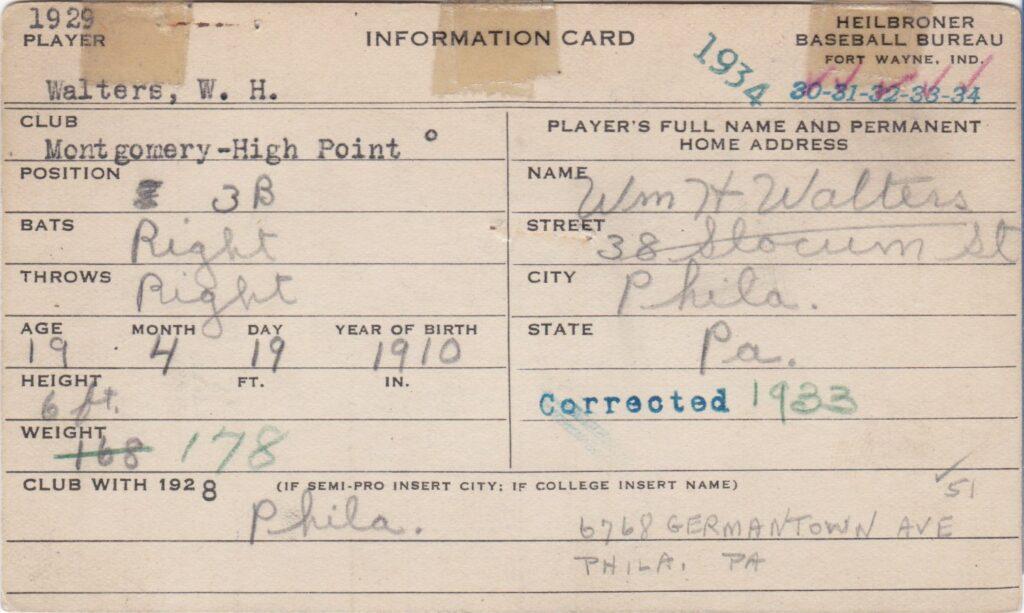 1929
PLAYER
INFORMATION CARD
HEILBRONER
BASEBALL BUREAU
FORT WAYNE, IND.
1934
30-31-32-33-34
Walters, W. H.
CLUB
Montgomery-High Point
PLAYER'S FULL NAME AND PERMANENT
HOME ADDRESS
POSITION 3B
NAME Wm H Walters
BATS Right
STREET 38 Slocum St
THROWS Right
CITY Phila.
AGE MONTH DAY YEAR OF BIRTH
19 4 19 1910
STATE Pa.
HEIGHT FT. IN.
6 ft.
Corrected 1933
WEIGHT 168 178
CLUB WITH 1928 (IF SEMI-PRO INSERT CITY; IF COLLEGE INSERT NAME)
Phila.
51
6768 GERMANTOWN AVE
PHILA, PA